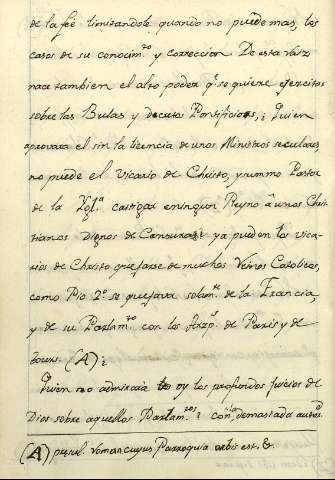 de la feè limitandole quando no puede mas, los
casos de su conocim.to y correccion. De esta raiz
nace tambien el alto poder q.e se quiere exercitar
sobre las Bulas y decretos Pontificios, ¿ Quien
aprovara el sin la licencia de unos Ministros seculares
no puede el Vicario de Christo, y summo Pastor
de la Ygl.a castigar en ningun Reyno à unos Chris
tianos Dignos de Censuras? ya pueden los vica
rios de Christo quejarse de muchos Reinos Catolicos,
como Pio 2.o se quejava solam.te de la Francia,
y de su Parlam.to con los Arzp.s de Paris y de
tours. (A)=
¿Quien no admiraia oy los profundos juicios de
Dios sobre aquellos Parlam.tos? con la demasiada autor.d
(A) presul. romanus cuyus Parroquia orbis est. &.